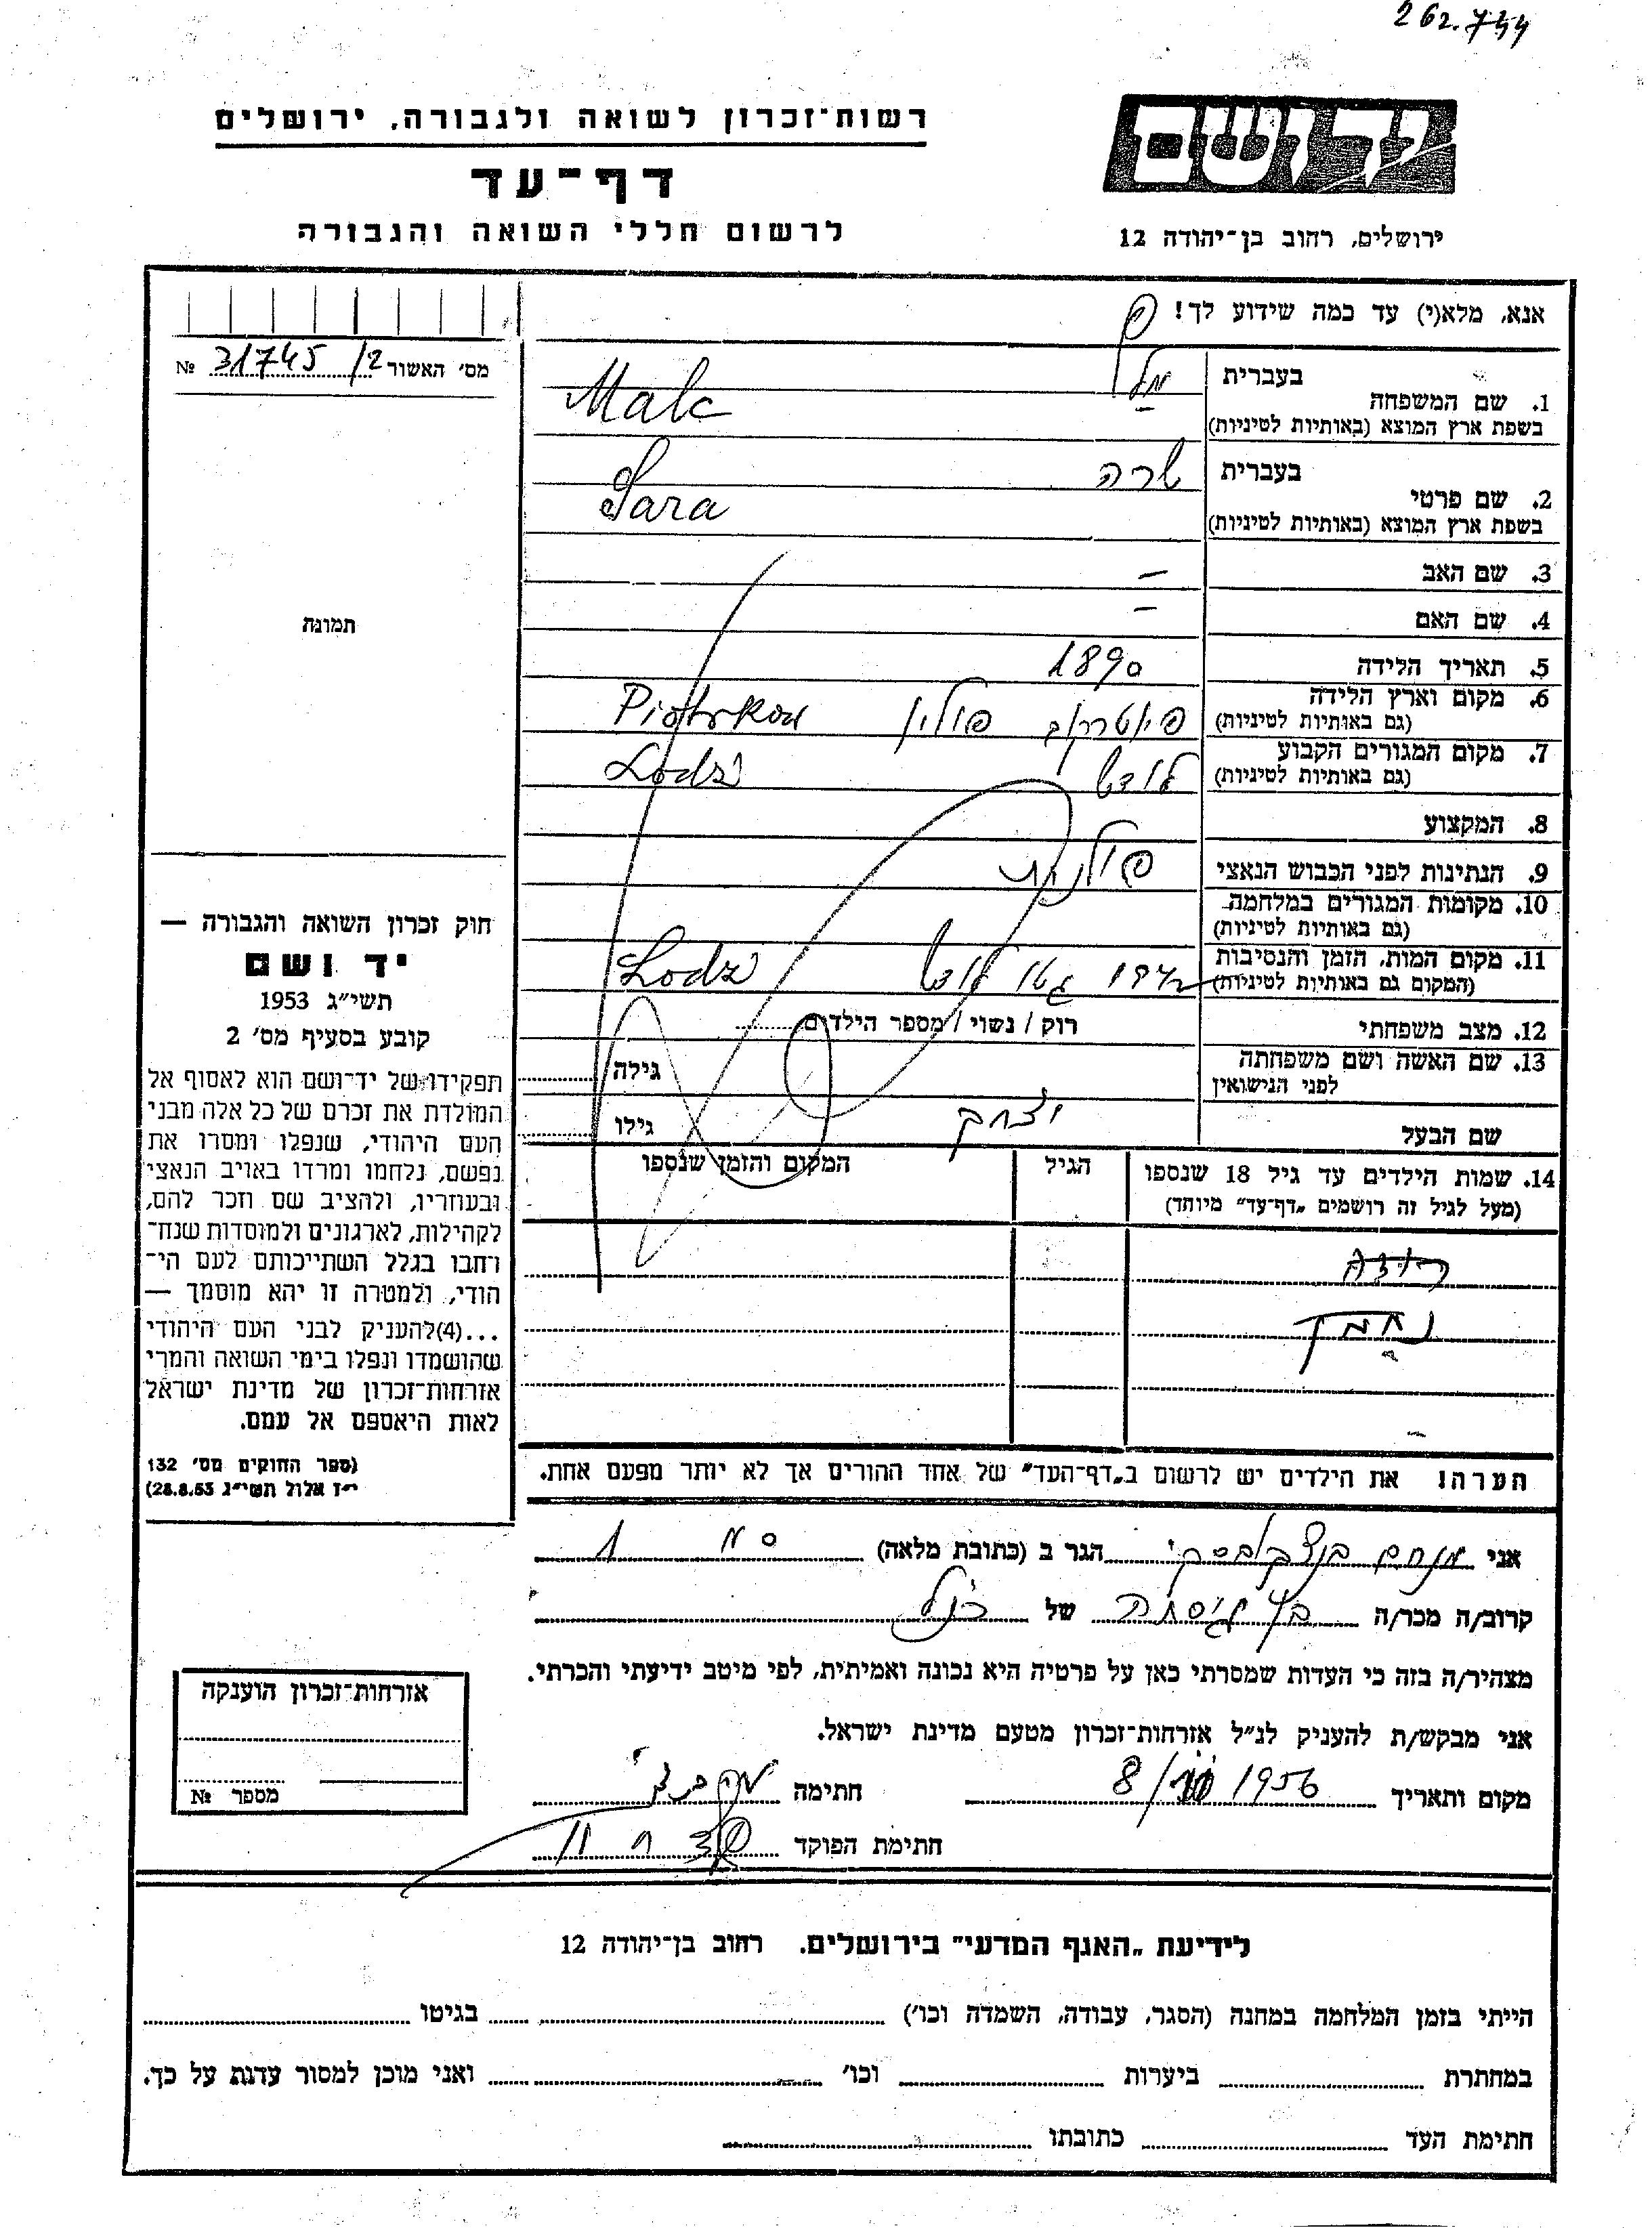 262.744
רשות־זכרון לשואה ולגבורה, ירושלים
דף־עד
לרשום חללי השואה והגבורה
יד ושם
ירושלים, רחוב בן־יהודה 12
אנא, מלא(י) עד כמה שידוע לך!
מס׳ האשור 31745/2 №
1. שם המשפחה
בעברית
בשפת ארץ המוצא (באותיות לטיניות)
Mak
2. שם פרטי
בעברית שרה
בשפת ארץ המוצא (באותיות לטיניות) Sara
3. שם האב –
4. שם האם –
5. תאריך הלידה 1890
6. מקום וארץ הלידה
(גם באותיות לטיניות) פיוטרקוב פולין Piotrkow
7. מקום המגורים הקבוע
(גם באותיות לטיניות) לודז Lodz
8. המקצוע
9. הנתינות לפני הכבוש הנאצי פולנית
10. מקומות המגורים במלחמה
(גם באותיות לטיניות)
11. מקום המות, הזמן והנסיבות
(המקום גם באותיות לטיניות) 1942 גטו לודז Lodz
12. מצב משפחתי רוק / נשוי / מספר הילדים
13. שם האשה ושם משפחתה
לפני הנישואין גילה
שם הבעל יצחק גילו
14. שמות הילדים עד גיל 18 שנספו
(מעל לגיל זה רושמים „דף־עד״ מיוחד)
הגיל
המקום והזמן שנספו
הערה! את הילדים יש לרשום ב„דף־העד״ של אחד ההורים אך לא יותר מפעם אחת.
תמונה
חוק זכרון השואה והגבורה —
יד ושם
תשי״ג 1953
קובע בסעיף מס׳ 2
תפקידו של יד־ושם הוא לאסוף אל
המולדת את זכרם של כל אלה מבני
העם היהודי, שנפלו ומסרו את
נפשם, נלחמו ומרדו באויב הנאצי
ובעוזריו, ולהציב שם וזכר להם,
לקהילות, לארגונים ולמוסדות שנח־
רחבו בגלל השתייכותם לעם הי־
הודי, ולמטרה זו יהא מוסמך —
...(4) להעניק לבני העם היהודי
שהושמדו ונפלו בימי השואה והמרי
אזרחות־זכרון של מדינת ישראל
לאות היאספם אל עמם.
(ספר החוקים מס׳ 132
י״ז אלול תשי״ג 28.8.53)
אני מנחם הגר ב (כתובת מלאה)
קרוב/ה מכר/ה בן גיסתה של הנ״ל
מצהיר/ה בזה כי העדות שמסרתי כאן על פרטיה היא נכונה ואמיתית, לפי מיטב ידיעתי והכרתי.
אני מבקש/ת להעניק לנ״ל אזרחות־זכרון מטעם מדינת ישראל.
מקום ותאריך 1956 חתימה
חתימת הפוקד
אזרחות־זכרון הוענקה
מספר №
לידיעת „האגף המדעי״ בירושלים. רחוב בן־יהודה 12
הייתי בזמן המלחמה במחנה (הסגר, עבודה, השמדה וכו׳) בגיטו
במחתרת ביערות וכו׳ ואני מוכן למסור עדות על כך.
חתימת העד כתובתו